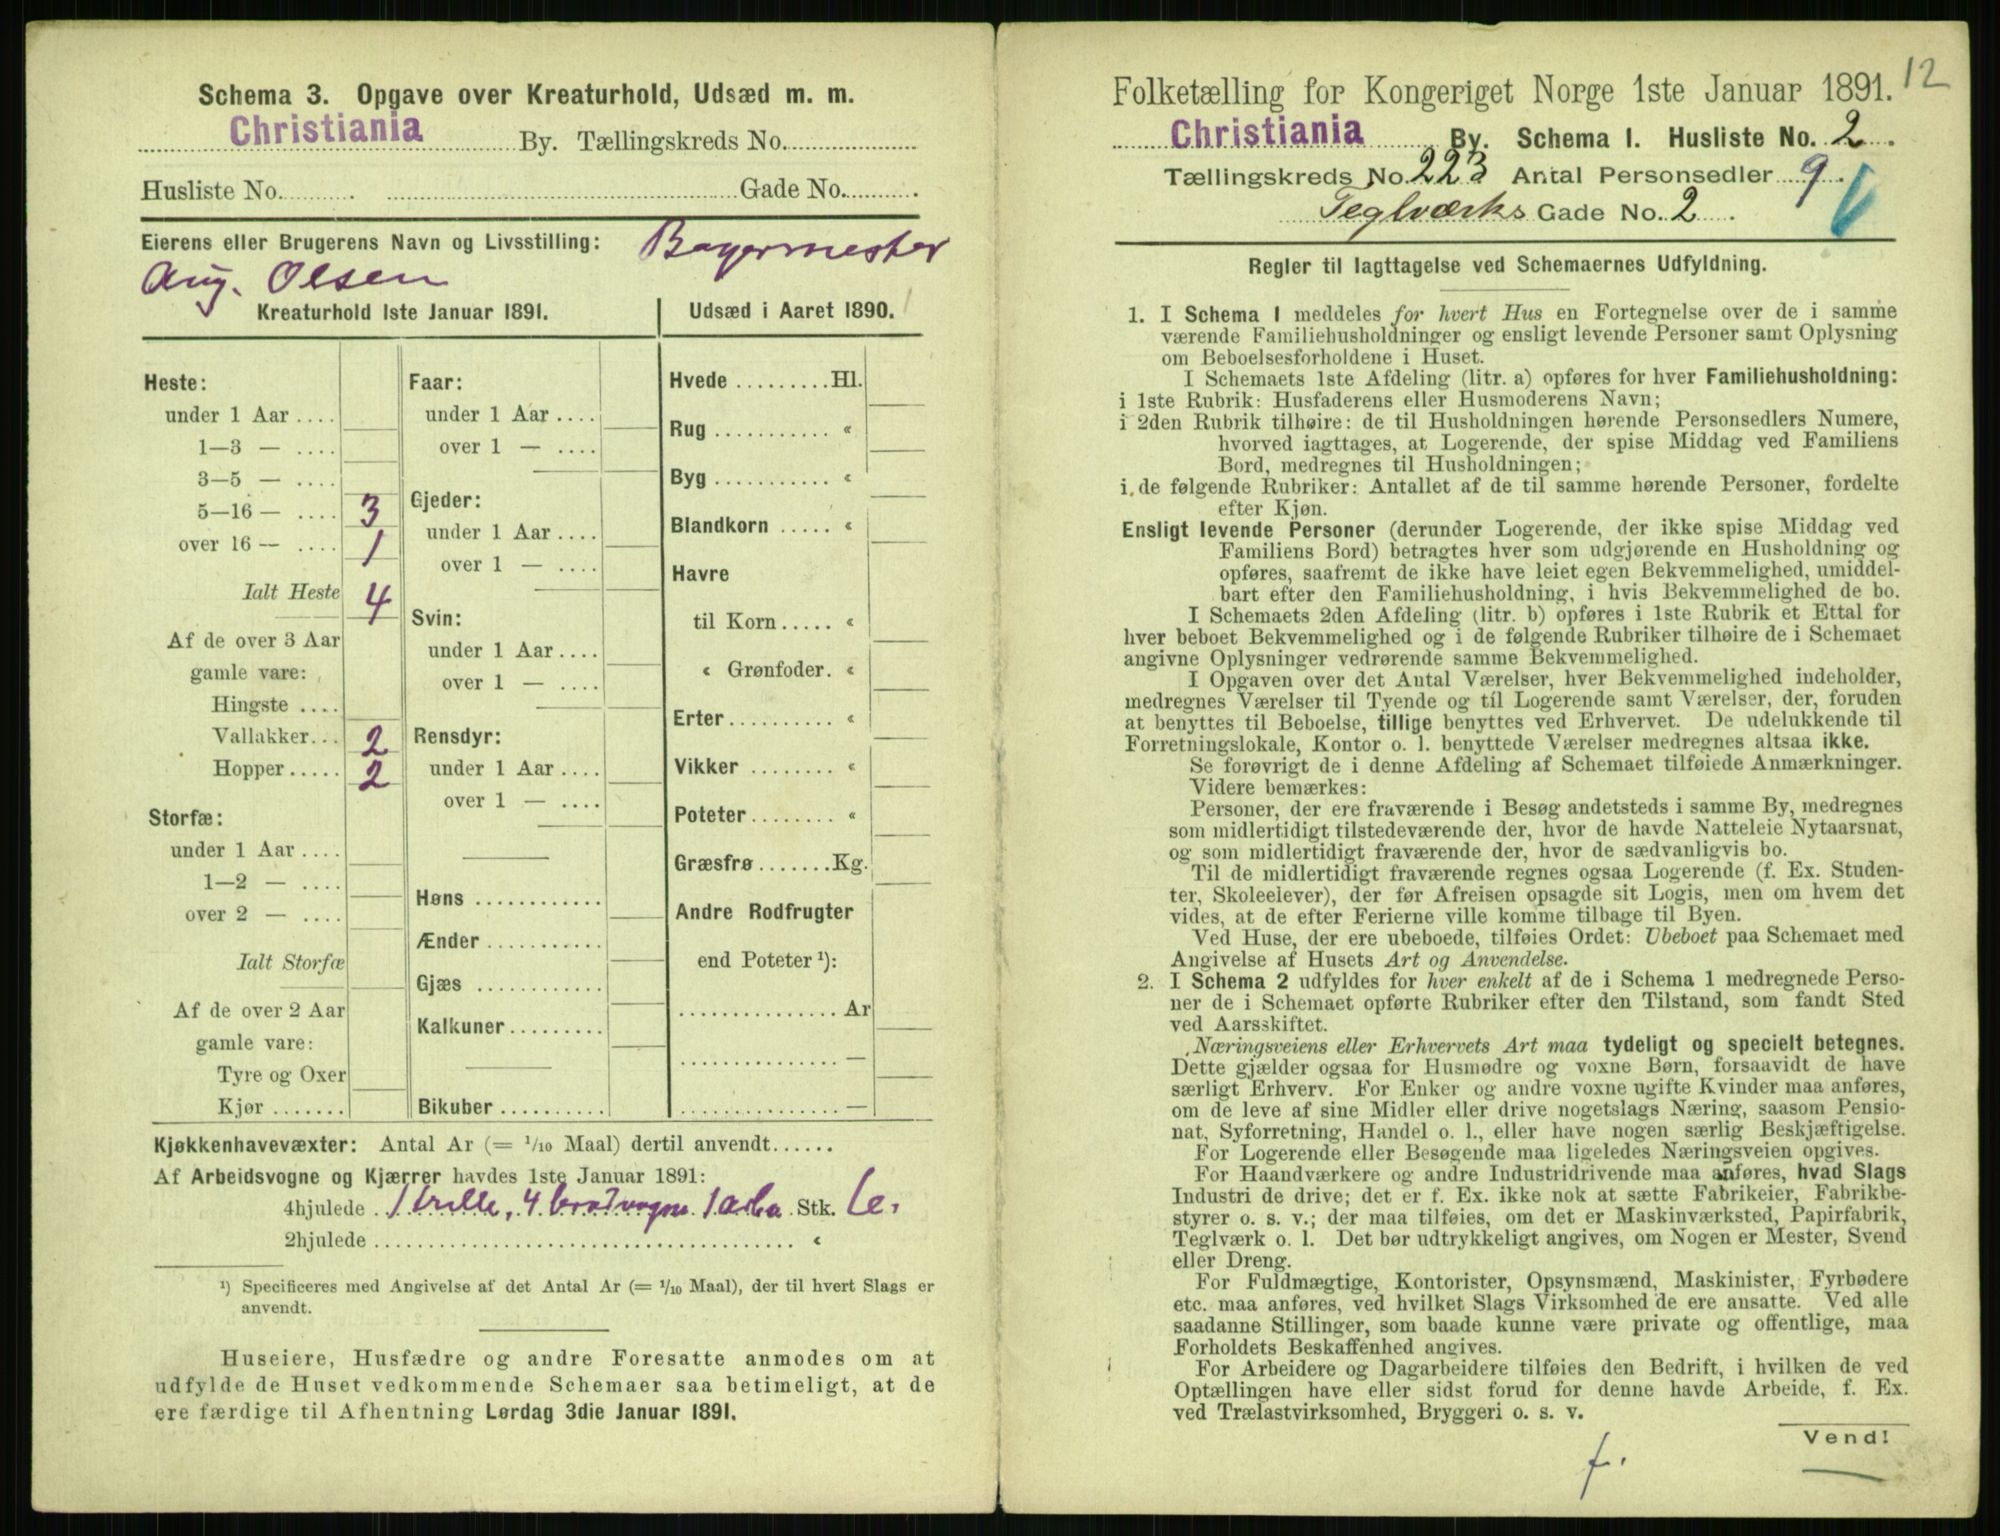 Schema 3. Opgave over Kreaturhold, Udsæd m. m.
Christiania By. Tællingskreds No.
Husliste No. Gade No.
Eierens eller Brugerens Navn og Livsstilling: Bagermester
Aug. Olsen
Kreaturhold 1ste Januar 1891.
Heste:
under 1 Aar ....
1—3 — ....
3—5 — ....
5—16 — .... 3
over 16 — .... 1
Ialt Heste 4
Af de over 3 Aar
gamle vare:
Hingste ....
Vallakker... 2
Hopper ..... 2
Storfæ:
under 1 Aar ....
1—2 — ....
over 2 — ....
Ialt Storfæ
Af de over 2 Aar
gamle vare:
Tyre og Oxer
Kjør .......
Faar:
under 1 Aar ....
over 1 — ....
Gjeder:
under 1 Aar ....
over 1 — ....
Svin:
under 1 Aar ....
over 1 — ....
Rensdyr:
under 1 Aar ....
over 1 — ....
Høns ............
Ænder ...........
Gjæs ............
Kalkuner.........
Bikuber ..........
Udsæd i Aaret 1890.
Hvede .........Hl.
Rug ........... «
Byg ........... «
Blandkorn ..... «
Havre
til Korn ..... «
« Grønfoder. «
Erter.......... «
Vikker ........ «
Poteter........ «
Græsfrø .......Kg.
Andre Rodfrugter
end Poteter ¹):
............... Ar
............... —
............... —
Kjøkkenhavevæxter: Antal Ar (= 1/10 Maal) dertil anvendt......
Af Arbeidsvogne og Kjærrer havdes 1ste Januar 1891:
4hjulede 1 trille, 4 brødvogne 1 arba Stk. 6.
2hjulede ....................................... «
¹) Specificeres med Angivelse af det Antal Ar (= 1/10 Maal), der til hvert Slags er
anvendt.
Huseiere, Husfædre og andre Foresatte anmodes om at
udfylde de Huset vedkommende Schemaer saa betimeligt, at de
ere færdige til Afhentning Lørdag 3die Januar 1891.
12
Folketælling for Kongeriget Norge 1ste Januar 1891.
Christiania By. Schema I. Husliste No. 2.
Tællingskreds No. 223 Antal Personsedler 9.
Teglværks Gade No. 2
Regler til Iagttagelse ved Schemaernes Udfyldning.
1. I Schema I meddeles for hvert Hus en Fortegnelse over de i samme
værende Familiehusholdninger og ensligt levende Personer samt Oplysning
om Beboelsesforholdene i Huset.
I Schemaets 1ste Afdeling (litr. a) opføres for hver Familiehusholdning:
i 1ste Rubrik: Husfaderens eller Husmoderens Navn;
i 2den Rubrik tilhøire: de til Husholdningen hørende Personsedlers Numere,
hvorved iagttages, at Logerende, der spise Middag ved Familiens
Bord, medregnes til Husholdningen;
i de følgende Rubriker: Antallet af de til samme hørende Personer, fordelte
efter Kjøn.
Ensligt levende Personer (derunder Logerende, der ikke spise Middag ved
Familiens Bord) betragtes hver som udgjørende en Husholdning og
opføres, saafremt de ikke have leiet egen Bekvemmelighed, umiddel-
bart efter den Familiehusholdning, i hvis Bekvemmelighed de bo.
I Schemaets 2den Afdeling (litr. b) opføres i 1ste Rubrik et Ettal for
hver beboet Bekvemmelighed og i de følgende Rubriker tilhøire de i Schemaet
angivne Oplysninger vedrørende samme Bekvemmelighed.
I Opgaven over det Antal Værelser, hver Bekvemmelighed indeholder,
medregnes Værelser til Tyende og til Logerende samt Værelser, der, foruden
at benyttes til Beboelse, tillige benyttes ved Erhvervet. De udelukkende til
Forretningslokale, Kontor o. l. benyttede Værelser medregnes altsaa ikke.
Se forøvrigt de i denne Afdeling af Schemaet tilføiede Anmærkninger.
Videre bemærkes:
Personer, der ere fraværende i Besøg andetsteds i samme By, medregnes
som midlertidigt tilstedeværende der, hvor de havde Natteleie Nytaarsnat,
og som midlertidigt fraværende der, hvor de sædvanligvis bo.
Til de midlertidigt fraværende regnes ogsaa Logerende (f. Ex. Studen-
ter, Skoleelever), der før Afreisen opsagde sit Logis, men om hvem det
vides, at de efter Ferierne ville komme tilbage til Byen.
Ved Huse, der ere ubeboede, tilføies Ordet: Ubeboet paa Schemaet med
Angivelse af Husets Art og Anvendelse.
2. I Schema 2 udfyldes for hver enkelt af de i Schema 1 medregnede Perso-
ner de i Schemaet opførte Rubriker efter den Tilstand, som fandt Sted
ved Aarsskiftet.
Næringsveiens eller Erhvervets Art maa tydeligt og specielt betegnes.
Dette gjælder ogsaa for Husmødre og voxne Børn, forsaavidt de have
særligt Erhverv. For Enker og andre voxne ugifte Kvinder maa anføres,
om de leve af sine Midler eller drive nogetslags Næring, saasom Pensio-
nat, Syforretning, Handel o. l., eller have nogen særlig Beskjæftigelse.
For Logerende eller Besøgende maa ligeledes Næringsveien opgives.
For Haandværkere og andre Industridrivende maa anføres, hvad Slags
Industri de drive; det er f. Ex. ikke nok at sætte Fabrikeier, Fabrikbe-
styrer o. s. v.; der maa tilføies, om det er Maskinværksted, Papirfabrik,
Teglværk o. l. Det bør udtrykkeligt angives, om Nogen er Mester, Svend
eller Dreng.
For Fuldmægtige, Kontorister, Opsynsmænd, Maskinister, Fyrbødere
etc. maa anføres, ved hvilket Slags Virksomhed de ere ansatte. Ved alle
saadanne Stillinger, som baade kunne være private og offentlige, maa
Forholdets Beskaffenhed angives.
For Arbeidere og Dagarbeidere tilføies den Bedrift, i hvilken de ved
Optællingen have eller sidst forud for denne havde Arbeide, f. Ex.
ved Trælastvirksomhed, Bryggeri o. s. v.
Vend!
f.